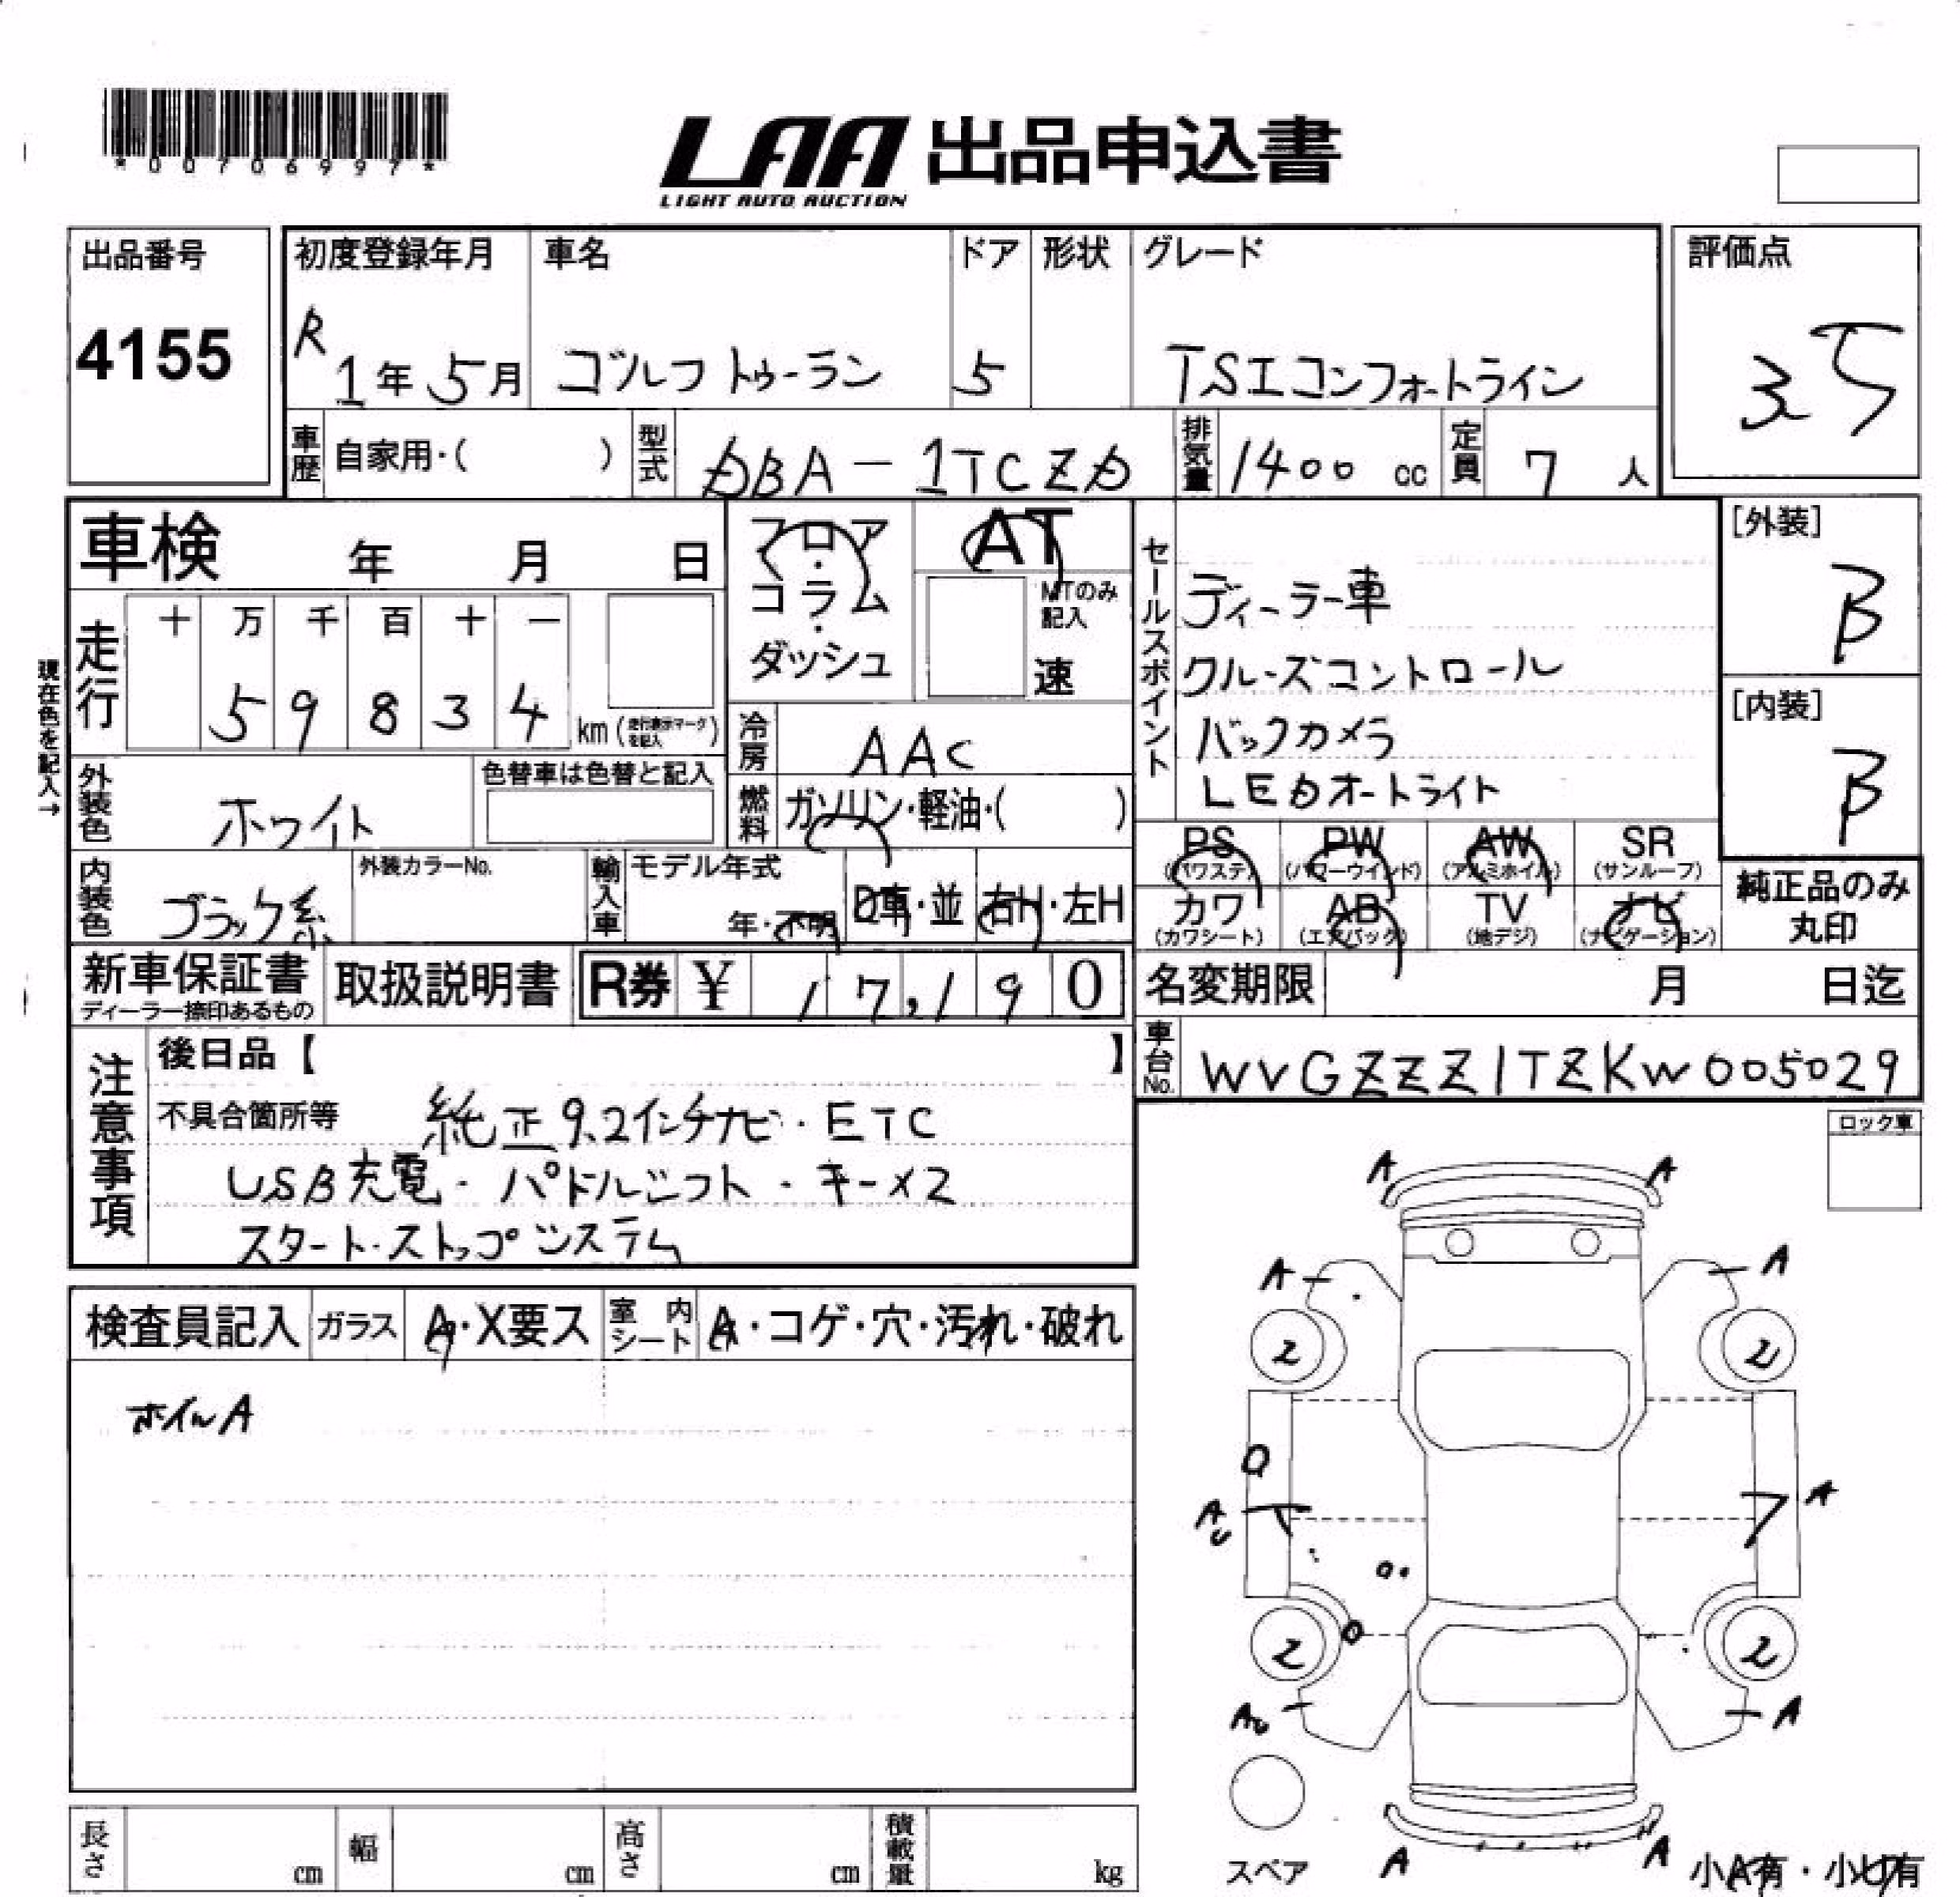 *00706997*
LAA 出品申込書
LIGHT AUTO AUCTION
出品番号
4155
初度登録年月
R
1年 5月
車名
ゴルフトゥーラン
ドア
5
形状
グレード
TSIコンフォートライン
評価点
3.5
車歴 自家用・( )
型式 DBA-1TCZD
排気量 1400 cc
定員 7 人
車検 年 月 日
フロア・コラム・ダッシュ
AT
MTのみ記入
速
走行
十 万 千 百 十 一
5 9 8 3 4
km(走行表示マークを記入)
現在色を記入→
冷房 AAC
燃料 ガソリン・軽油・( )
外装色 ホワイト
色替車は色替と記入
内装色 ブラック系
外装カラーNo.
輸入車 モデル年式
年・不明
D車・並
右H・左H
セールスポイント
ディーラー車
クルーズコントロール
バックカメラ
LEDオートライト
[外装]
B
[内装]
B
PS (パワステ)
PW (パワーウインド)
AW (アルミホイル)
SR (サンルーフ)
カワ (カワシート)
AB (エアバック)
TV (地デジ)
ナビ (ナビゲーション)
純正品のみ
丸印
新車保証書
ディーラー捺印あるもの
取扱説明書
R券 ¥ 17,190
名変期限 月 日迄
車台No. WVGZZZ1TZKW005029
注意事項
後日品【 】
不具合箇所等 純正9.2インチナビ・ETC
USB充電・パドルシフト・キー×2
スタート・ストップシステム
ロック車
検査員記入
ガラス A・X要ス
室内シート A・コゲ・穴・汚れ・破れ
ホイルA
A A
A A
2 2
A A
U
2 2
AU A
スペア
A A
小A有・小U有
長さ cm
幅 cm
高さ cm
積載量 kg